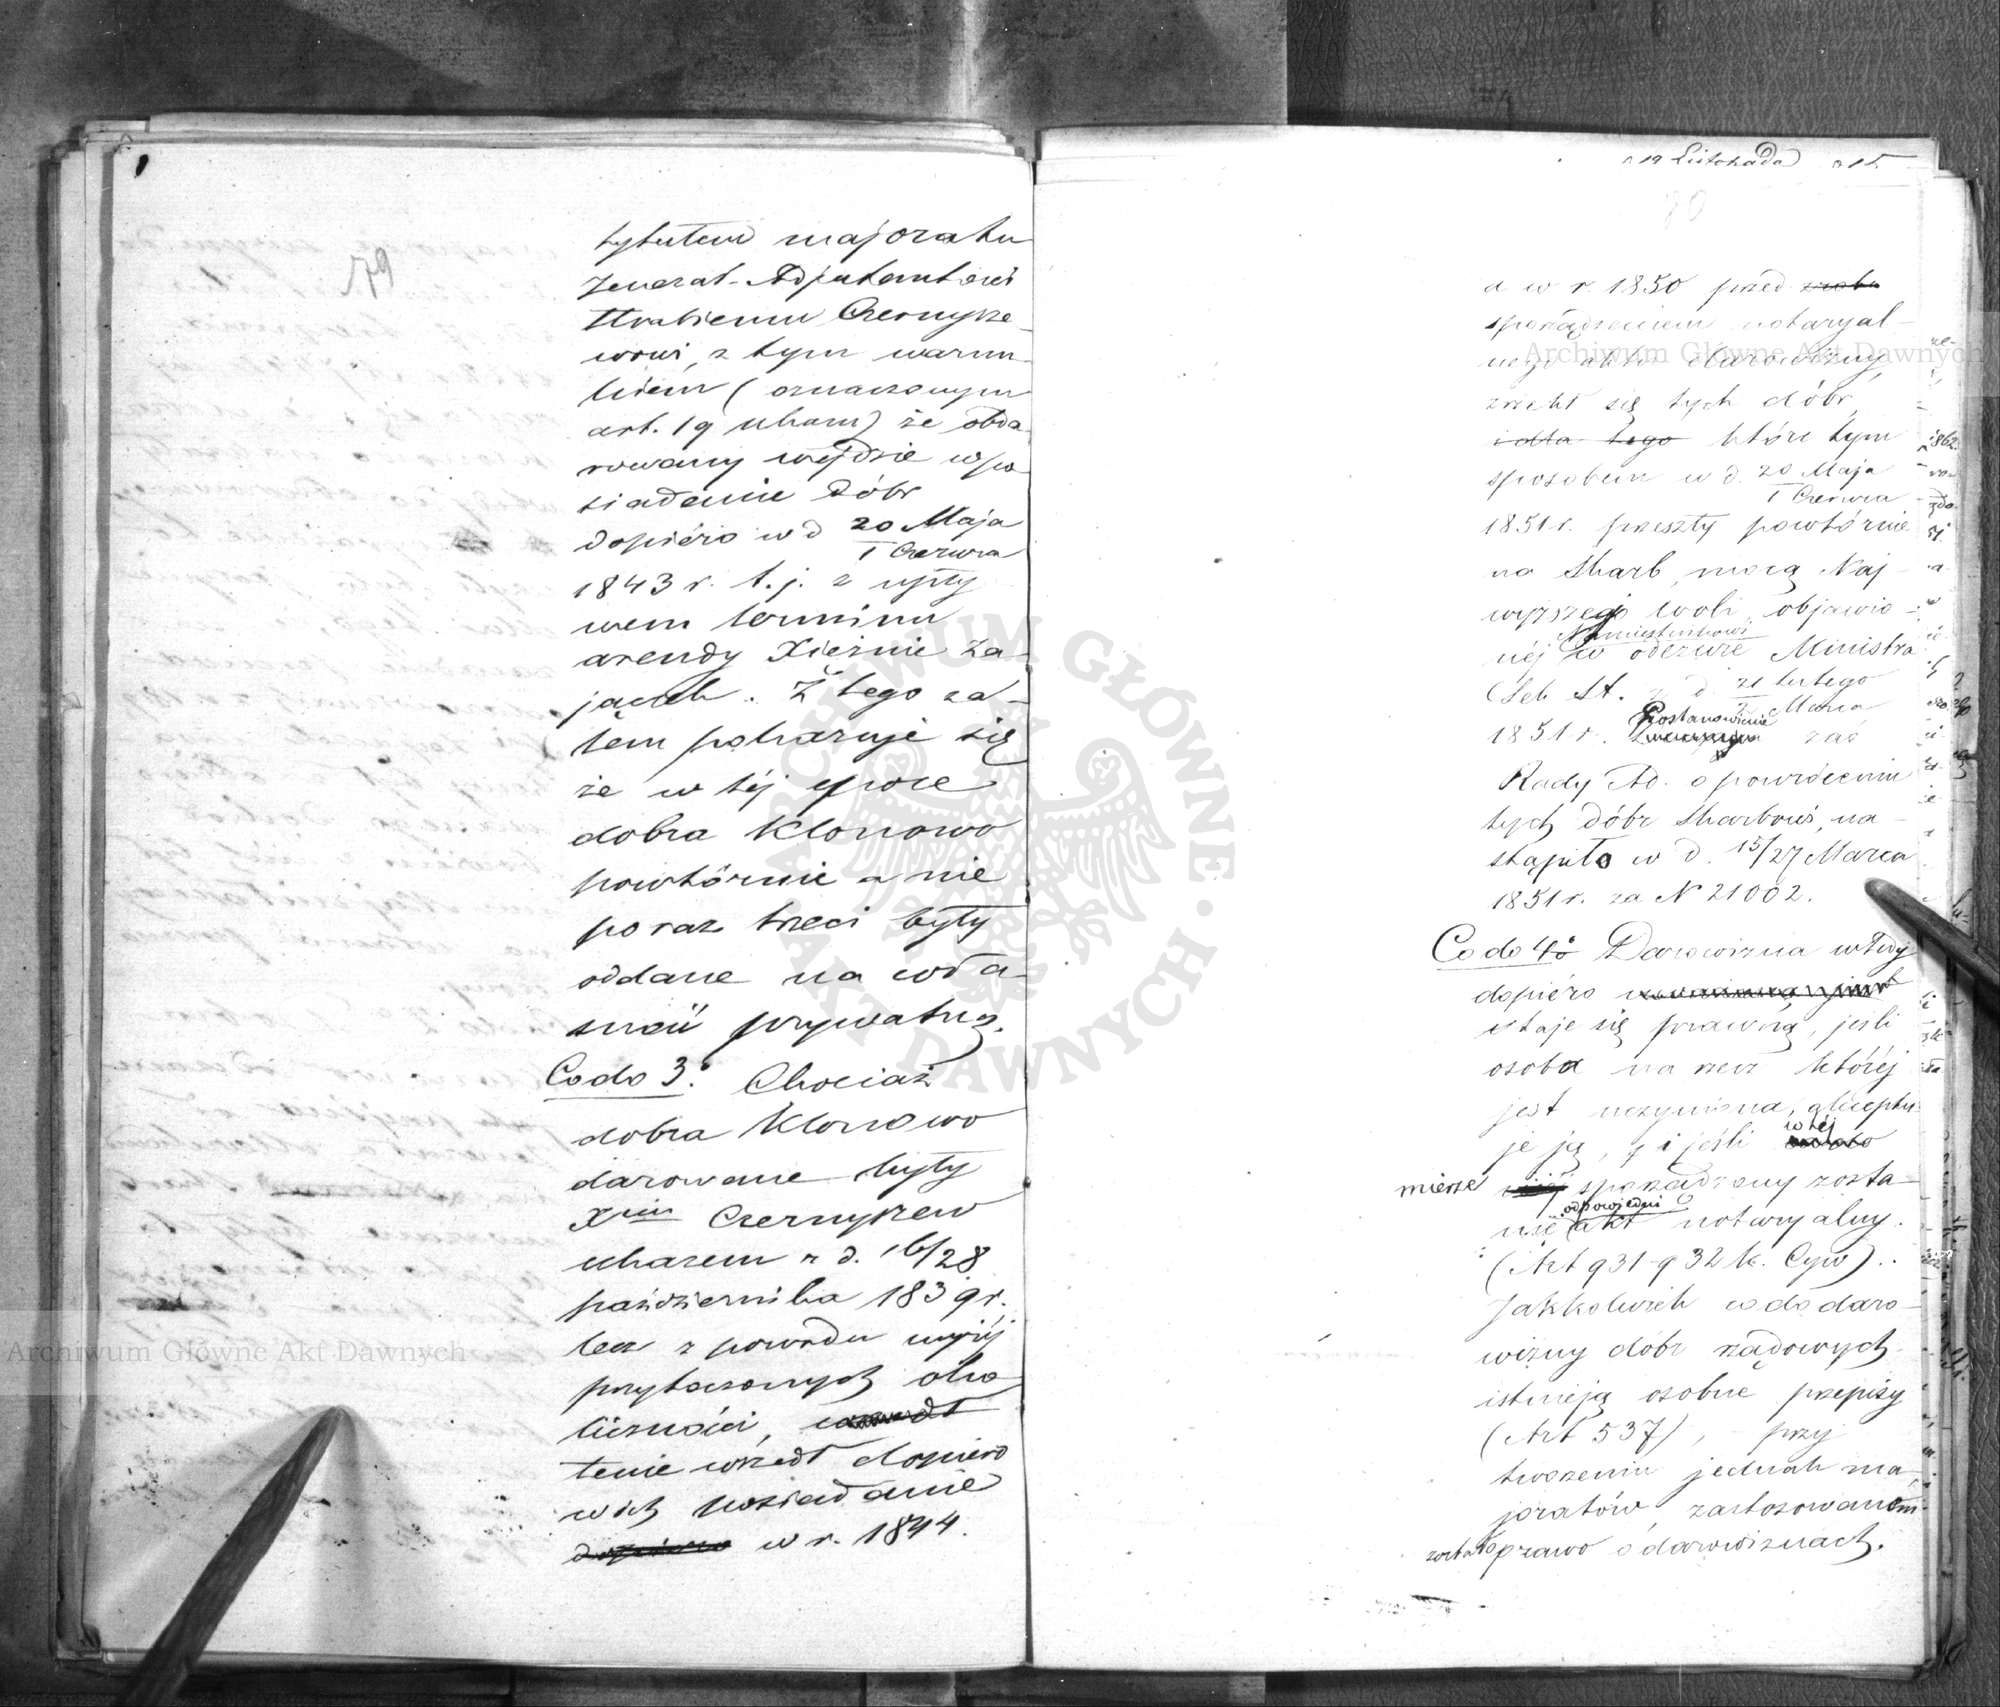 79
tytułem majoratu
Jenerał-Adjutantowi
Hrabiemu Czernysze-
wowi, z tym warun-
kiem (oznaczonym
art. 19 ukazu) że obda-
rowany wejdzie w po-
siadanie dóbr
dopiéro w d 20 Maja
1 Czerwca
1843 r. t. j. z upły
wem terminu
arendy Xiężnie Za-
jączek. Z tego za-
tém pokazuje się
że w téj epoce
dobra Klonowo
powtórnie a nie
po raz trzeci były
oddane na wła-
sność prywatną.
Co do 3º. Chociaż
dobra Klonowo
darowane były
Xciu Czernyszew
ukazem z d. 16/28
października 1839 r.
lecz z powodu wyżéj
przytoczonych oko-
liczności,
tenie wszedł dopiero
w ich posiadanie
dopiero w r. 1844.
19 Listopada 15
80
a w r. 1850 przed zrobie
sporządzeniem notaryal-
nego aktu darowizny,
zrzekł się tych dóbr,
i dla tego które tym
sposobem w d. 20 Maja
1 Czerwca
1851 r. przeszły powtórnie
na Skarb, mocą Naj-
wyższej woli, objawio-
Namiestnikowi
néj w odezwie Ministra
Sek St. z d. 21 Lutego
Marca
Postanowienie
1851 r. zaś
Rady Ad. o powróceniu
tych dóbr Skarbowi, na-
stąpiło w d. 15/27 Marca
1851 r. za N 21002.
Co do 4º Darowizna wtedy
dopiéro
staje się prawną, jeśli
osoba na rzecz któréj
jest uczyniona, akceptu-
w téj
je ją, i jeśli
mierze sporządzony zosta-
odpowiedni
nie akt notaryalny.
(Art 931-932 K. Cyw)..
Jakkolwiek co do daro-
wizny dóbr rządowych
istnieją osobne przepisy
(Art 537), - przy
tworzeniu jednak ma-
joratów, zastosowaném
zostało prawo o darowiznach.
Archiwum Główne Akt Dawnych
Archiwum Główne Akt Dawnych
ARCHIWUM GŁÓWNE · AKT DAWNYCH ·